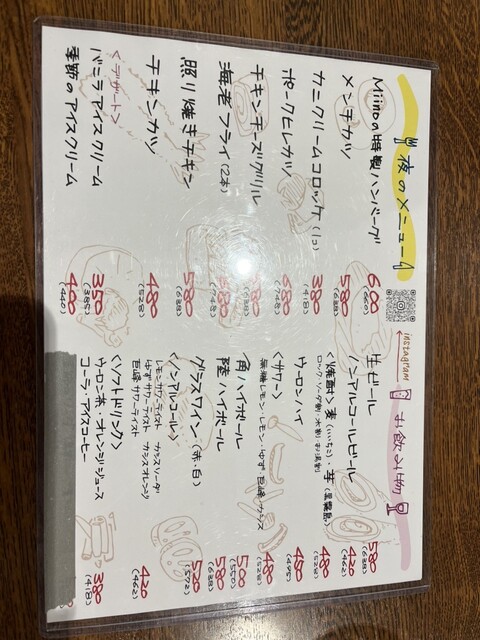 夜のメニュー
Miinoの特製ハンバーグ 600 (660)
メンチカツ 580 (638)
カニクリームコロッケ(1コ) 380 (418)
ポークヒレカツ 680 (748)
チキンチーズグリル
海老フライ(2本) (748)
照り焼きチキン 580 (638)
チキンカツ 480 (528)
<デザート>
バニラアイスクリーム 350 (385)
季節のアイスクリーム 400 (440)
instagram
お飲み物
生ビール 580 (638)
ノンアルコールビール 420 (462)
<焼酎> 麦(いいちこ)・芋(黒霧島) 480 (528)
ロック・ソーダ割・水割・お湯割
ウーロンハイ 450 (495)
<サワー> 480 (528)
無糖レモン・レモン・ゆず・巨峰・カシス
角ハイボール 500 (550)
陸ハイボール 580 (638)
グラスワイン(赤・白) 520 (572)
<ノンアルコール> 420 (462)
レモンサワーテイスト カシスソーダ
ゆずサワーテイスト カシスオレンジ
巨峰サワーテイスト
<ソフトドリンク> 380 (418)
ウーロン茶・オレンジジュース
コーラ・アイスコーヒー